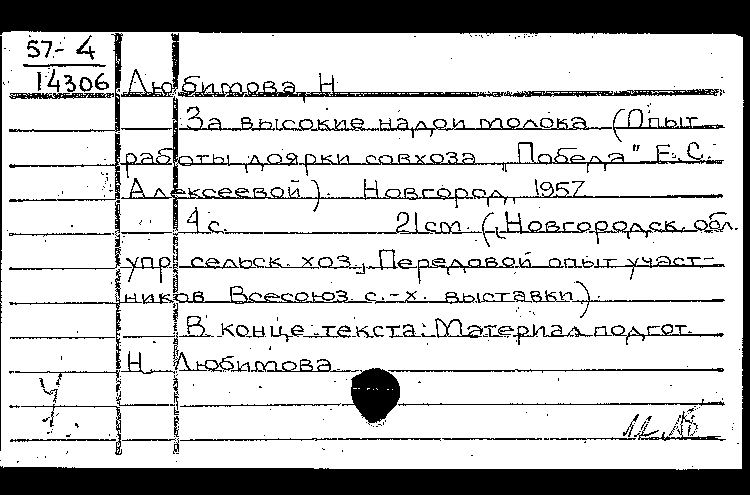 57-4
14306
Любимова, Н
За высокие надои молока (Опыт
работы доярки совхоза „Победа" Е.С.
Алексеевой). Новгород, 1957
4 с. 21 cm. („Новгородск. обл.
упр сельск. хоз., Передовой опыт участ-
ников Всесоюз с.-х. выставки).
В конце текста: Материал подгот.
Н. Любимова